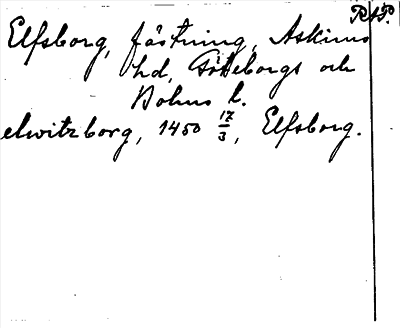 RAP.
Elfsborg, fästning, Askims
hd, Göteborgs och
Bohus l.
elwitzborg, 1450 17/3, Elfsborg.